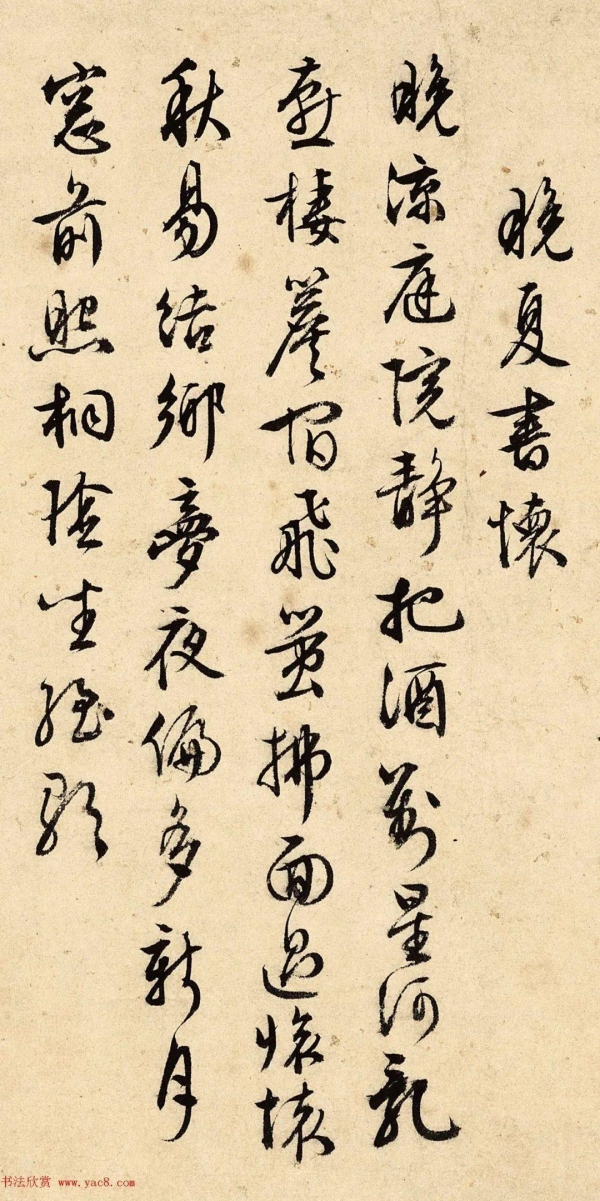 晚夏書懷
晚涼庭院靜把酒對星河亂
燕棲簷宿飛螢拂面過懷
秋易結鄉夢夜偏多新月
窓前照桐陰坐歌
书法欣赏 www.yac8.com